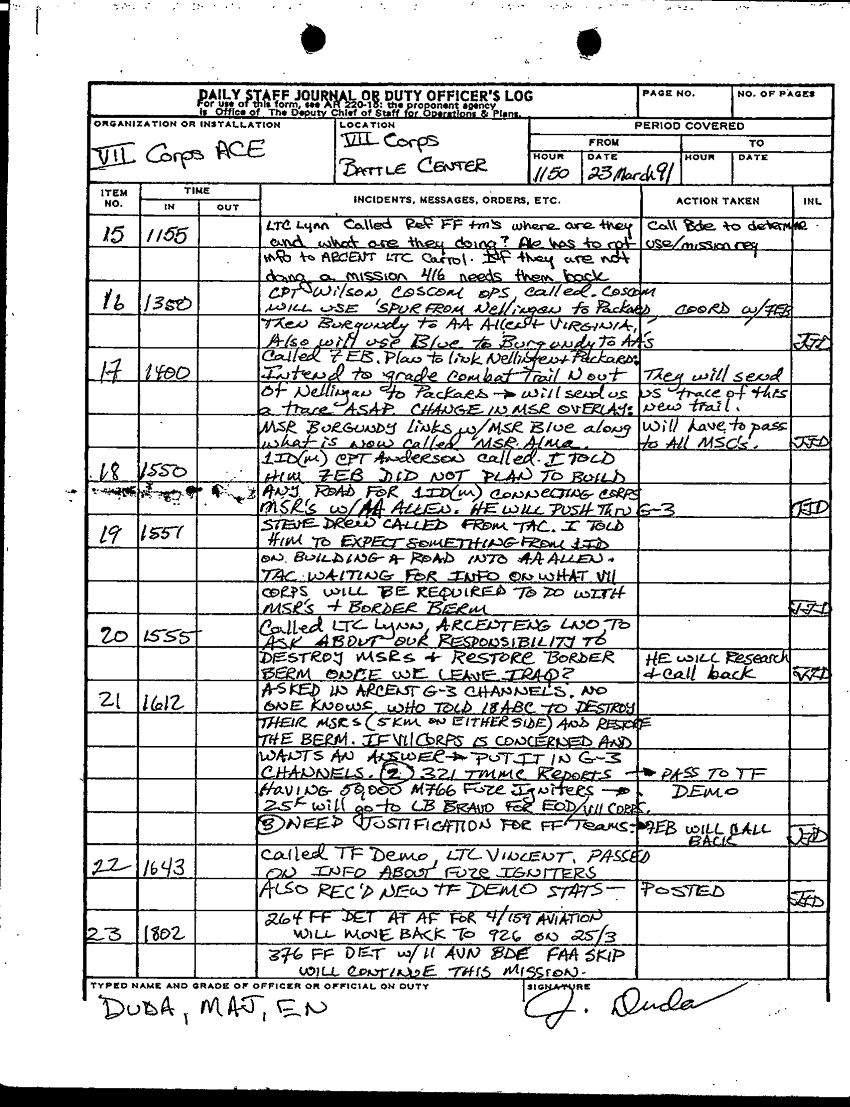 DAILY STAFF JOURNAL OR DUTY OFFICER'S LOG
For use of this form, see AR 220-15; the proponent agency
is Office of The Deputy Chief of Staff for Operations & Plans.
PAGE NO.
NO. OF PAGES
ORGANIZATION OR INSTALLATION
VII Corps ACE
LOCATION
VII Corps
BATTLE CENTER
PERIOD COVERED
FROM
TO
HOUR
DATE
HOUR
DATE
1150
23 March 91
ITEM NO.
TIME
IN
OUT
INCIDENTS, MESSAGES, ORDERS, ETC.
ACTION TAKEN
INL
15 1155 LTC Lynn Called Ref FF tm's where are they Call Bde to determine
and what are they doing? He has to rpt use/mission req
info to ARCENT LTC Carrol. If they are not
doing a mission 416 needs them back
16 1350 CPT Wilson COSCOM OPS called. Coscom
WILL USE SPUR FROM Nellingen to Packard COORD w/7EB
Then Burgundy to AA Allen + VIRGINIA,
Also will use Blue to Burgundy to AA's JJD
17 1400 Called 7EB. Plan to link Nellingen + Packard:
Intend to grade Combat Trail N out They will send
of Nellingen to Packard → will send us us trace of this
a trace ASAP. CHANGE IN MSR OVERLAY: new trail.
MSR BURGUNDY links w/MSR Blue along Will have to pass
what is now called MSR Alma. to All MSC's. JJD
18 1550 1ID(m) CPT Anderson called. I TOLD
HIM 7EB DID NOT PLAN TO BUILD
ANY ROAD FOR 1ID(m) CONNECTING CORPS
MSR's w/AA ALLEN. HE WILL PUSH THRU G-3 JJD
19 1551 STEVE DREW CALLED FROM TAC. I TOLD
HIM TO EXPECT SOMETHING FROM 1ID
ON BUILDING A ROAD INTO AA ALLEN.
TAC WAITING FOR INFO ON WHAT VII
CORPS WILL BE REQUIRED TO DO WITH
MSR's + BORDER BERM JJD
20 1555 Called LTC LYNN, ARCENT ENG LNO TO
ASK ABOUT OUR RESPONSIBILITY TO
DESTROY MSRs + RESTORE BORDER HE WILL Research
BERM ONCE WE LEAVE IRAQ? + call back JJD
21 1612 ASKED IN ARCENT G-3 CHANNELS. NO
ONE KNOWS WHO TOLD 18ABC TO DESTROY
THEIR MSRS (5KM ON EITHER SIDE) AND RESTORE
THE BERM. IF VII CORPS IS CONCERNED AND
WANTS AN ANSWER → PUT IT IN G-3
CHANNELS. (2) 321 TMMC Reports → PASS TO TF
Having 50,000 M766 Fuze Igniters → DEMO
25K will go to LB BRAVO FOR EOD/VII CORPS.
(3) NEED JUSTIFICATION FOR FF Teams → 7EB WILL CALL
BACK JJD
22 1643 Called TF Demo, LTC VINCENT. PASSED
ON INFO ABOUT FUZE IGNITERS
ALSO REC'D NEW TF DEMO STATS — POSTED JJD
264 FF DET AT AF FOR 4/159 AVIATION
23 1802 WILL MOVE BACK TO 926 ON 25/3
376 FF DET w/11 AVN BDE FAA SKIP
WILL CONTINUE THIS MISSION.
TYPED NAME AND GRADE OF OFFICER OR OFFICIAL ON DUTY
DUDA, MAJ, EN
SIGNATURE
J. Duda